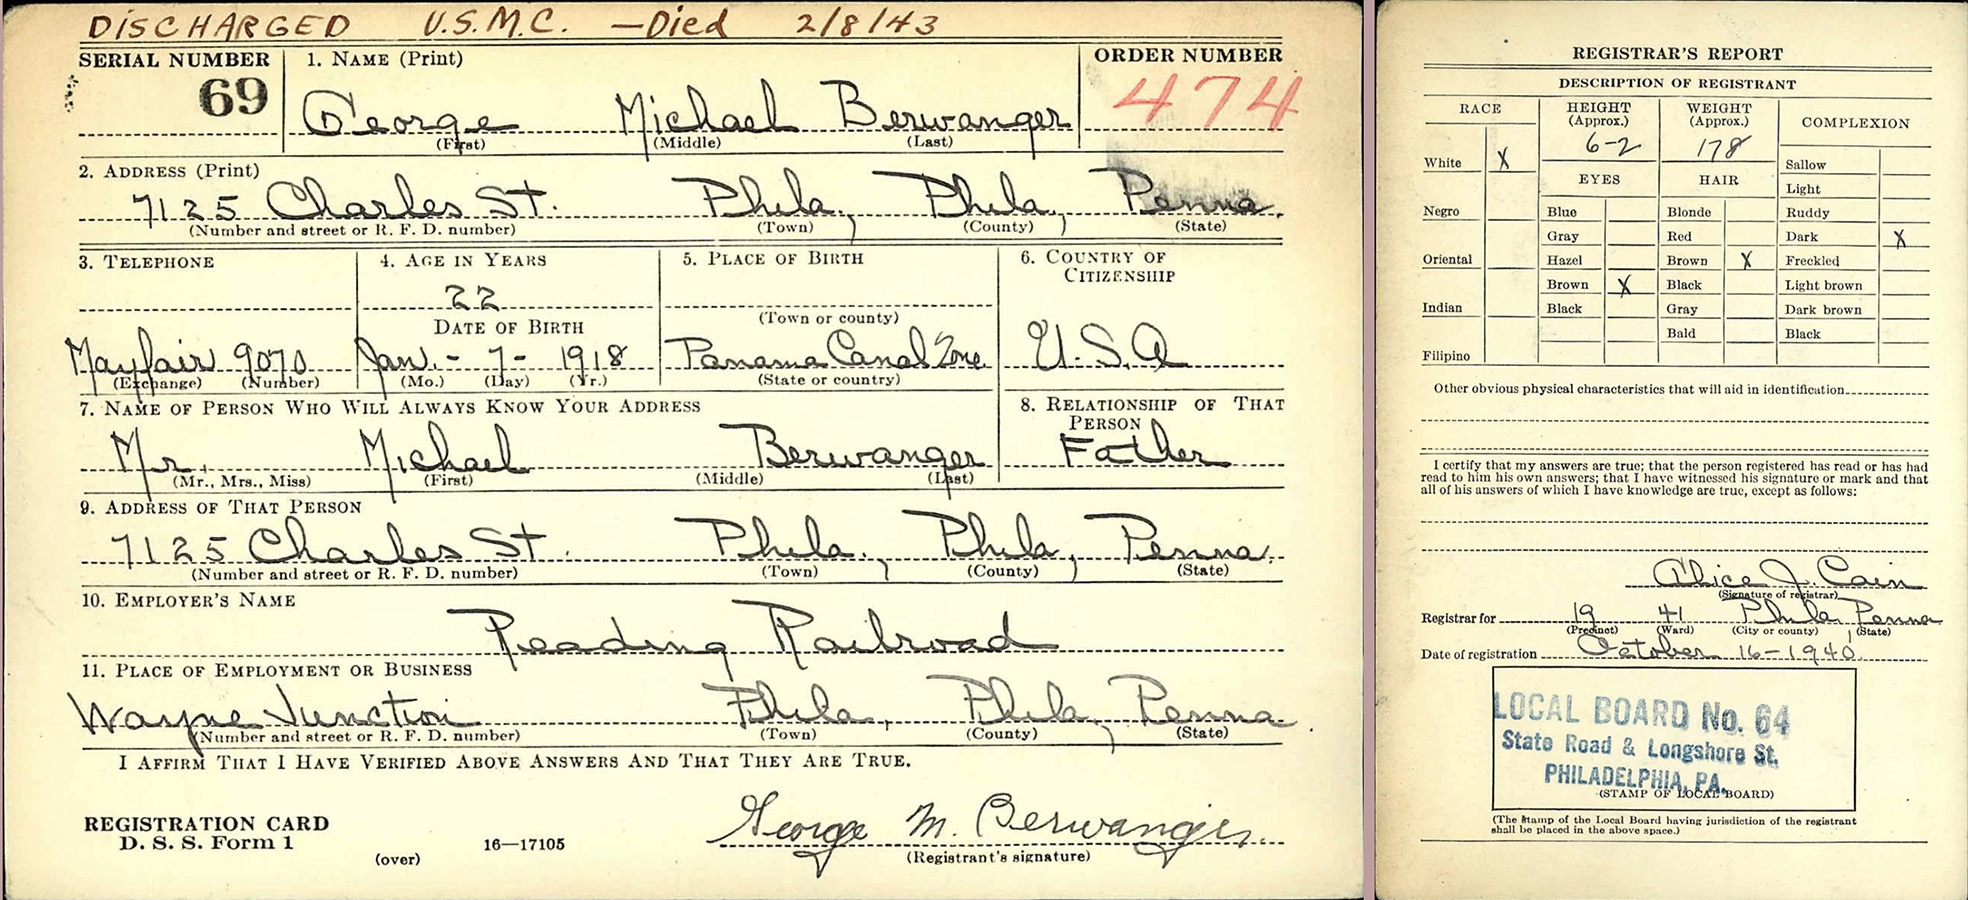 DISCHARGED U.S.M.C. —Died 2/8/43
SERIAL NUMBER 1. NAME (Print) ORDER NUMBER
69 George Michael Berwanger 474
(First) (Middle) (Last)
2. ADDRESS (Print)
7125 Charles St. Phila., Phila., Penna.
(Number and street or R. F. D. number) (Town) (County) (State)
3. TELEPHONE 4. AGE IN YEARS 5. PLACE OF BIRTH 6. COUNTRY OF
CITIZENSHIP
22
DATE OF BIRTH (Town or county)
Mayfair 9070 Jan. - 7 - 1918 Panama Canal Zone U.S.A
(Exchange) (Number) (Mo.) (Day) (Yr.) (State or country)
7. NAME OF PERSON WHO WILL ALWAYS KNOW YOUR ADDRESS 8. RELATIONSHIP OF THAT
PERSON
Mr. Michael Berwanger Father
(Mr., Mrs., Miss) (First) (Middle) (Last)
9. ADDRESS OF THAT PERSON
7125 Charles St. Phila., Phila., Penna.
(Number and street or R. F. D. number) (Town) (County) (State)
10. EMPLOYER'S NAME
Reading Railroad
11. PLACE OF EMPLOYMENT OR BUSINESS
Wayne Junction Phila., Phila., Penna.
(Number and street or R. F. D. number) (Town) (County) (State)
I AFFIRM THAT I HAVE VERIFIED ABOVE ANSWERS AND THAT THEY ARE TRUE.
George M. Berwanger.
REGISTRATION CARD
D. S. S. Form 1 16—17105
(over) (Registrant's signature)
REGISTRAR'S REPORT
DESCRIPTION OF REGISTRANT
RACE HEIGHT (Approx.) WEIGHT (Approx.) COMPLEXION
6-2 178
White X Sallow
EYES HAIR Light
Negro Blue Blonde Ruddy
Gray Red Dark X
Oriental Hazel Brown X Freckled
Brown X Black Light brown
Indian Black Gray Dark brown
Bald Black
Filipino
Other obvious physical characteristics that will aid in identification
I certify that my answers are true; that the person registered has read or has had
read to him his own answers; that I have witnessed his signature or mark and that
all of his answers of which I have knowledge are true, except as follows:
Alice J. Cain
(Signature of registrar)
Registrar for 19 41 Phila. Penna
(Precinct) (Ward) (City or county) (State)
Date of registration October 16-1940
LOCAL BOARD No. 64
State Road & Longshore St.
PHILADELPHIA, PA.
(STAMP OF LOCAL BOARD)
(The stamp of the Local Board having jurisdiction of the registrant
shall be placed in the above space.)